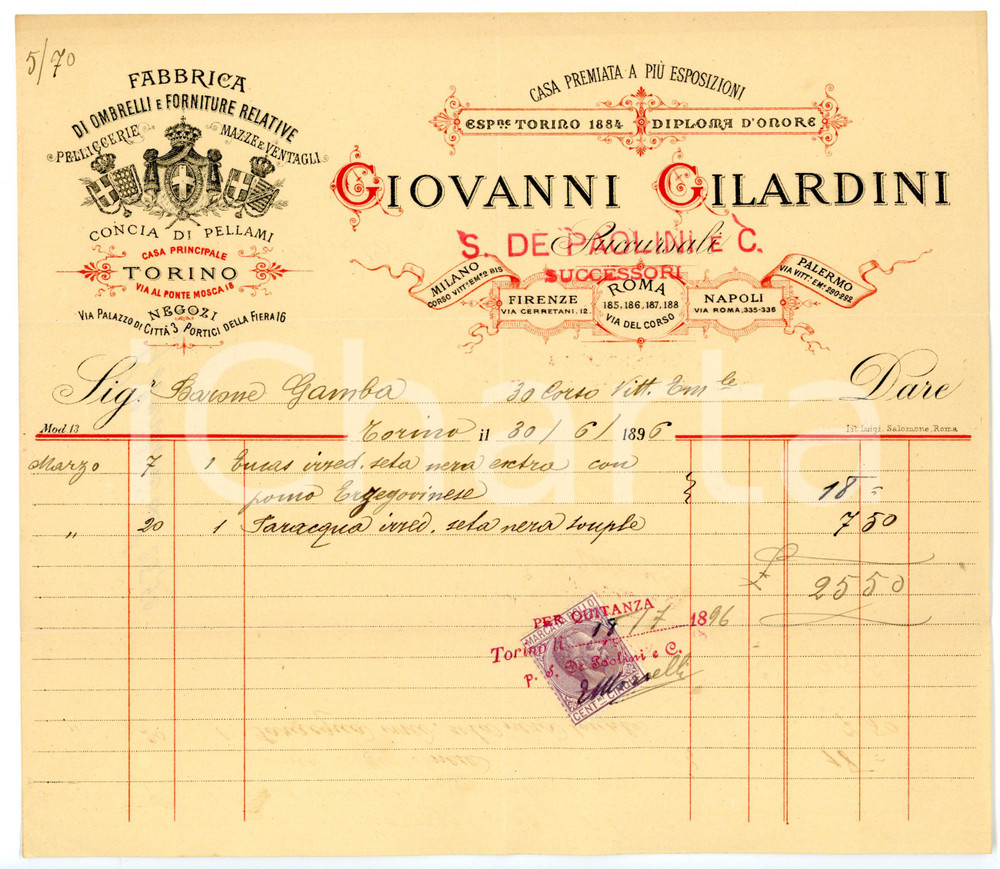 5/70
FABBRICA
DI OMBRELLI E FORNITURE RELATIVE
PELLICCERIE MAZZE E VENTAGLI
CONCIA DI PELLAMI
CASA PRINCIPALE
TORINO
VIA AL PONTE MOSCA 18
NEGOZI
VIA PALAZZO DI CITTÀ 3 PORTICI DELLA FIERA 16
CASA PREMIATA A PIÙ ESPOSIZIONI
ESPNE TORINO 1884 DIPLOMA D'ONORE
GIOVANNI GILARDINI
Succursali
S. DE PAOLINI E C.
SUCCESSORI
MILANO
CORSO VITT: EMLE 2 BIS
FIRENZE
VIA CERRETANI, 12.
ROMA
185, 186, 187, 188
VIA DEL CORSO
NAPOLI
VIA ROMA, 335-336
PALERMO
VIA VITT: EM: 290-292
Sigr Barone Gamba 30 Corso Vitt. Emle Dare
Mod 13
Torino il 30/6/1896
Ist. Luigi Salomone, Roma
Marzo 7 1 Encas irred. seta nera extra con
pomo Erzegovinese 18 =
" 20 1 Paracqua irred. seta nera souple 7 50
£ 25 50
MARCA DA BOLLO
PER QUITANZA
Torino li 18/7 1896
p. S. De Paolini e C.
CENT. CINQUE
iCharta